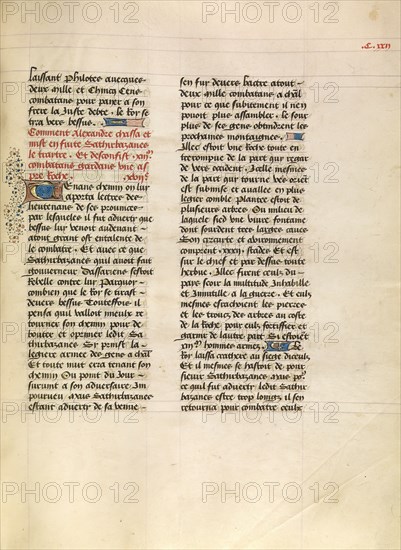 .C. xxii
laissant philotes auecques
deux mille et Chincq Cens
combatans pour paier a son
frere la Juste debte. le Roy se
tira vers bessus.
Comment Alexandre chassa et
mist en fuite Sathibarzanes
le traitre. Et desconfit .xiii.ᵐ
combatans gardans vne as
pre Roche. .xxiiᵉ.
Tenans chemin on luy
aporta lettres des
lieutenans de ses prouinces
par lesquelles il fut aduerti que
bessus luy venoit audeuant
atout grant et entalente de
le combatre. Et auec ce que
Sathibarzanes quil auoit fait
gouuerneur Dassariens sestoit
rebelle contre luy Parquoy
combien que le Roy se tirast
deuers bessus Touteffois il
pensa quil valloit mieulx re
tourner son chemin pour de
bouter et oprimer ledit Sa
thibarzanes Sy prinst la
legiere armee des gens a chāl
Et toute nuit erra tenant son
chemin Ou point du Jour
suruint a son aduersaire Im
pourueu mais Sathibarzanes
estant aduerti de sa venue
sen fuy deuers bactre atout
deux mille combatans a chāl
pour ce que subitement il nen
pouoit plus assambler. le sour
plus de ses gens obtindrent les
prochaines montaignes.
Illec estoit vne Roche toute en
trerompue de la part qui regar
de vers occident. Icelle mesmes
de la part qui tourne vers orient
est submise et auallee en plus
legier comble plantee estoit de
pluseurs arbres Ou milieu de
laquele sied vne viue fontaine
dont sourdent tres larges eaues
Son circuite et auironnement
comprent .xxxii. stades Et est
sur le chief et par dessus toute
herbue. Illec furent ceulx du
pays seoir la multitude Inhabille
et Innutille a la guerre. Et eulx
mesmes estachent les pierres
et les troux des arbres au coste
de la Roche pour eulx fortifier et
garnir de lautre part Si estoient
.xiii.ᵐ hommes armez. Le
Roy laissa crathere au siege diceulx
Et il mesmes se hastoit de pour
sieuir Sathibarzanes mais po
ce quil fut aduerti ledit Sathi
barzanes estre trop loingz il sen
retourna pour combatre ceulx
PHOTO 12